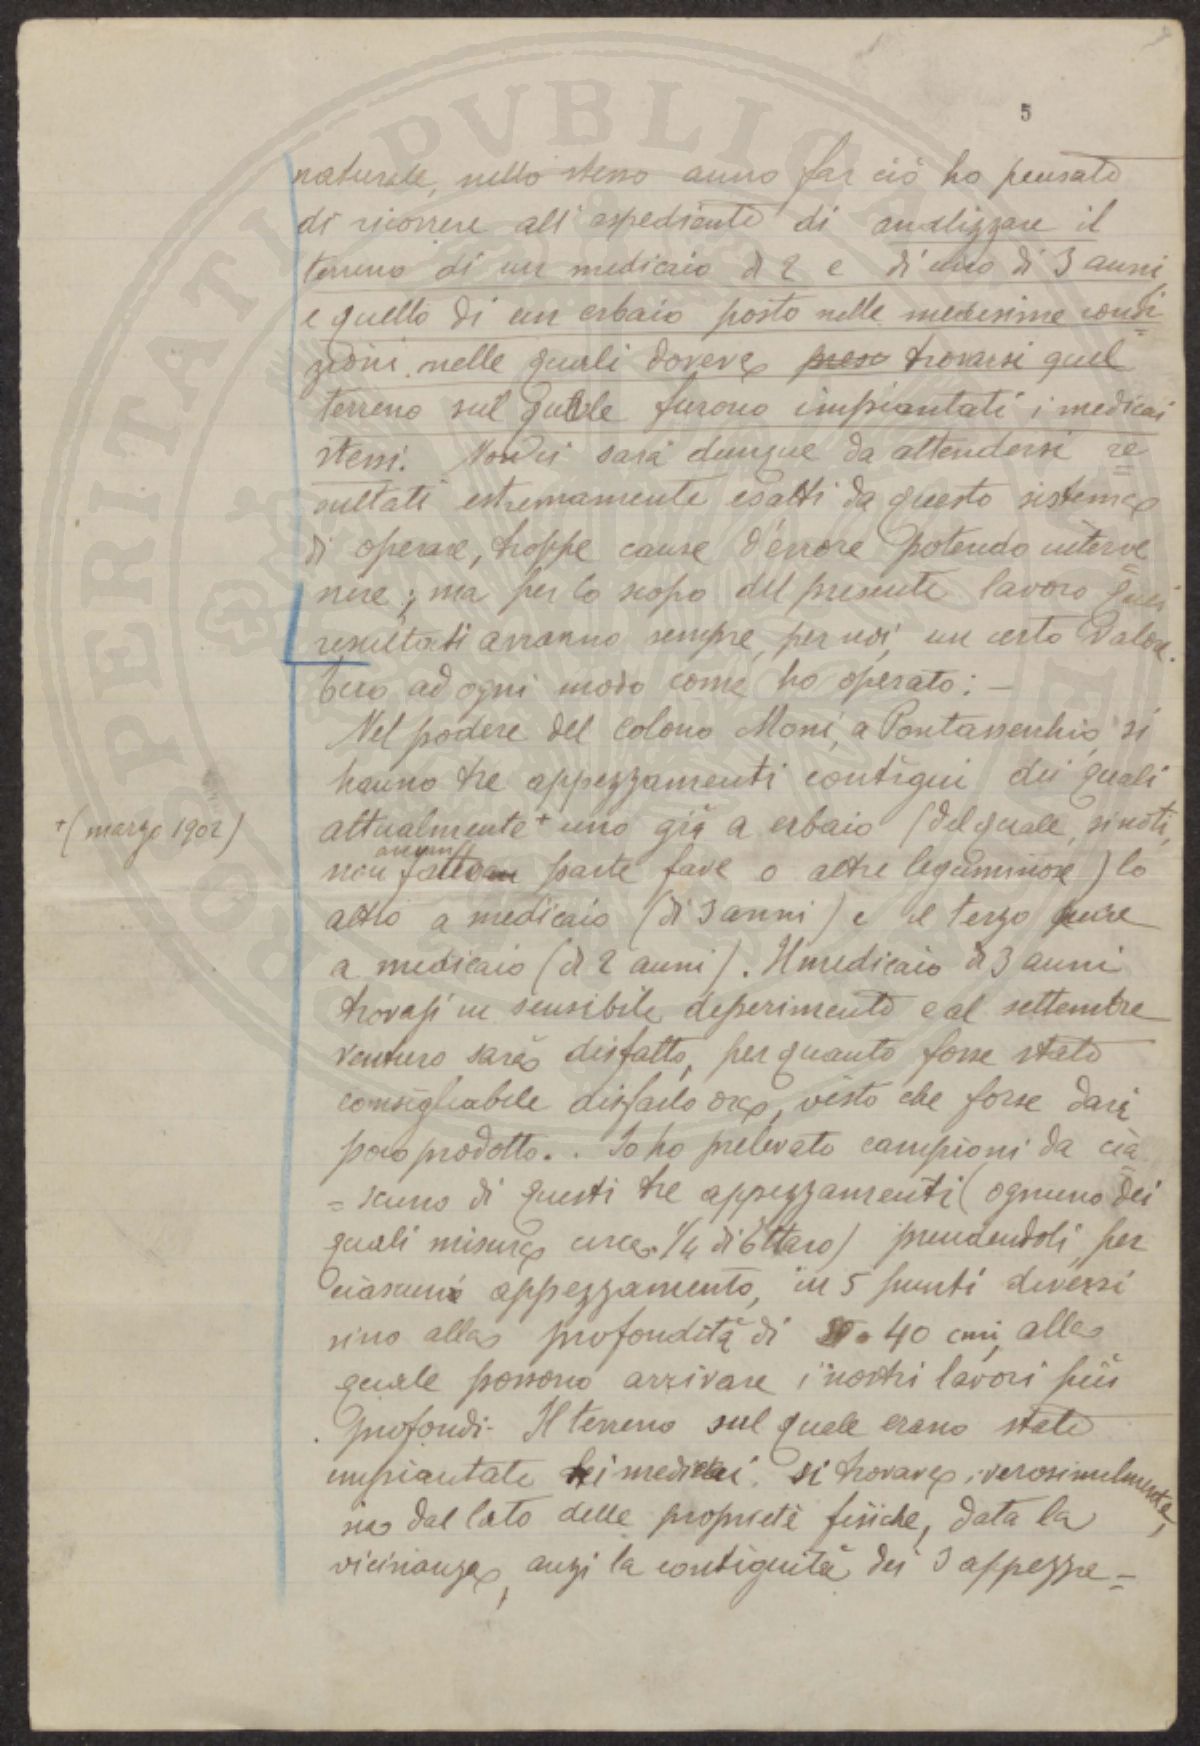 5
naturale, nello stesso anno far ciò ho pensato
di ricorrere all'espediente di analizzare il
terreno di un medicaio di 2 e di uno di 3 anni
e quello di un erbaio posto nelle medesime condi
zioni nelle quali doveva preso trovarsi quel
terreno sul quale furono impiantati i medicai
stessi. Non ci sarà dunque da attendersi re
sultati estremamente esatti da questo sistema
di operare, troppe cause d'errore potendo interve
nire; ma per lo scopo del presente lavoro quei
resultati avranno sempre, per noi, un certo valore.
Ecco ad ogni modo come ho operato: -
Nel podere del colono Moni, a Pontasserchio, si
hanno tre appezzamenti contigui dei quali
+ (marzo 1902)
attualmente + uno già a erbaio (del quale, si noti,
non parte fave o altre leguminose) lo
altro a medicaio (di 3 anni) e il terzo pure
a medicaio (di 2 anni). Il medicaio di 3 anni
trovasi in sensibile deperimento e al settembre
venturo sarà disfatto, per quanto fosse stato
consigliabile disfarlo ora, visto che forse darà
poco prodotto.. Io ho prelevato campioni da cia
= scuno di questi tre appezzamenti (ognuno dei
quali misura circa 1/4 di Ettaro) prendendoli, per
ciascun appezzamento, in 5 punti diversi
sino alla profondità di 40 cm, alla
quale possono arrivare i nostri lavori più
profondi - Il terreno sul quale erano state
impiantate i medicai si trovava, verosimilmente,
sia dal lato delle proprietà fisiche, data la
vicinanza, anzi la contiguità dei 3 appezza=